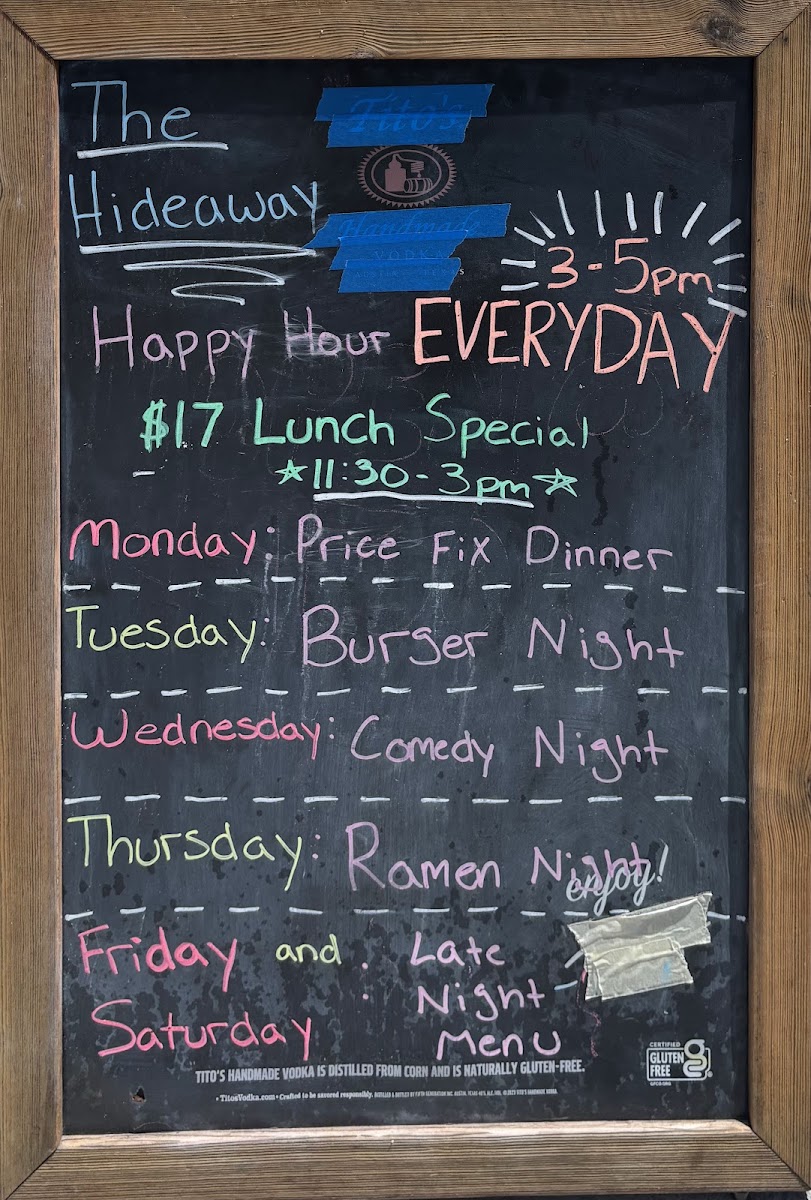 The
Hideaway
Tito's
Handmade
VODKA
3-5pm
Happy Hour EVERYDAY
$17 Lunch Special
11:30-3pm
Monday: Price Fix Dinner
Tuesday: Burger Night
Wednesday: Comedy Night
Thursday: Ramen Night
enjoy!
Friday and : Late
Night
Saturday Menu
TITO'S HANDMADE VODKA IS DISTILLED FROM CORN AND IS NATURALLY GLUTEN-FREE.
• TitosVodka.com • Crafted to be savored responsibly.
CERTIFIED
GLUTEN
FREE
GFCO.ORG